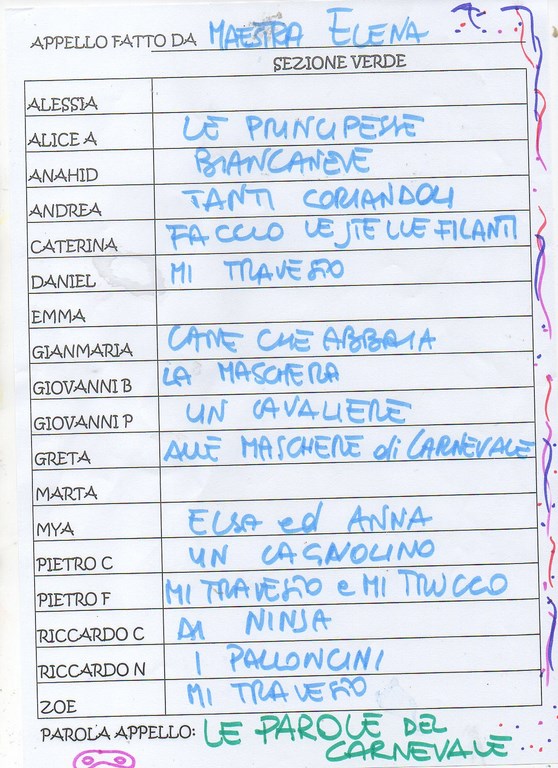 APPELLO FATTO DA MAESTRA ELENA
SEZIONE VERDE
ALESSIA
ALICE A LE PRINCIPESSE
ANAHID BIANCANEVE
ANDREA TANTI CORIANDOLI
CATERINA FACCIO LE STELLE FILANTI
DANIEL MI TRAVESTO
EMMA
GIANMARIA CANE CHE ABBAIA
GIOVANNI B LA MASCHERA
GIOVANNI P UN CAVALIERE
GRETA ALLE MASCHERE di CARNEVALE
MARTA
MYA ELSA ed ANNA
PIETRO C UN CAGNOLINO
PIETRO F MI TRAVESTO e MI TRUCCO
RICCARDO C DA NINJA
RICCARDO N I PALLONCINI
ZOE MI TRAVESTO
PAROLA APPELLO: LE PAROLE DEL
CARNEVALE